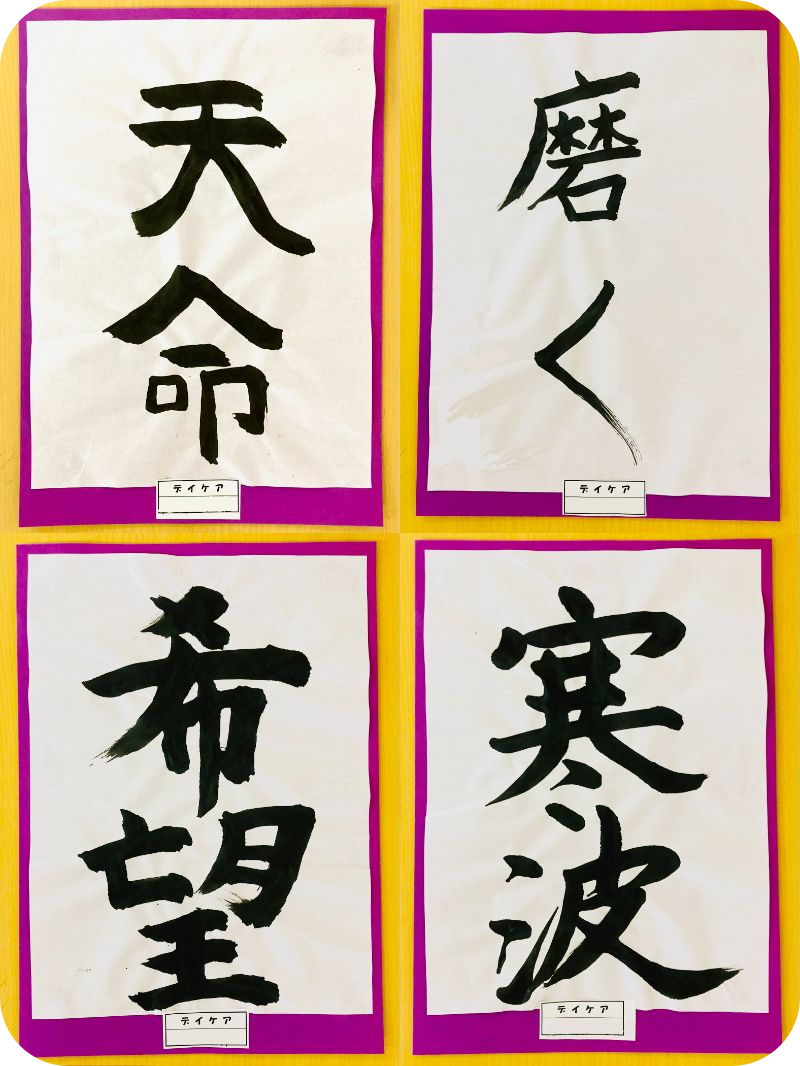 天命
デイケア
磨く
デイケア
希望
デイケア
寒波
デイケア